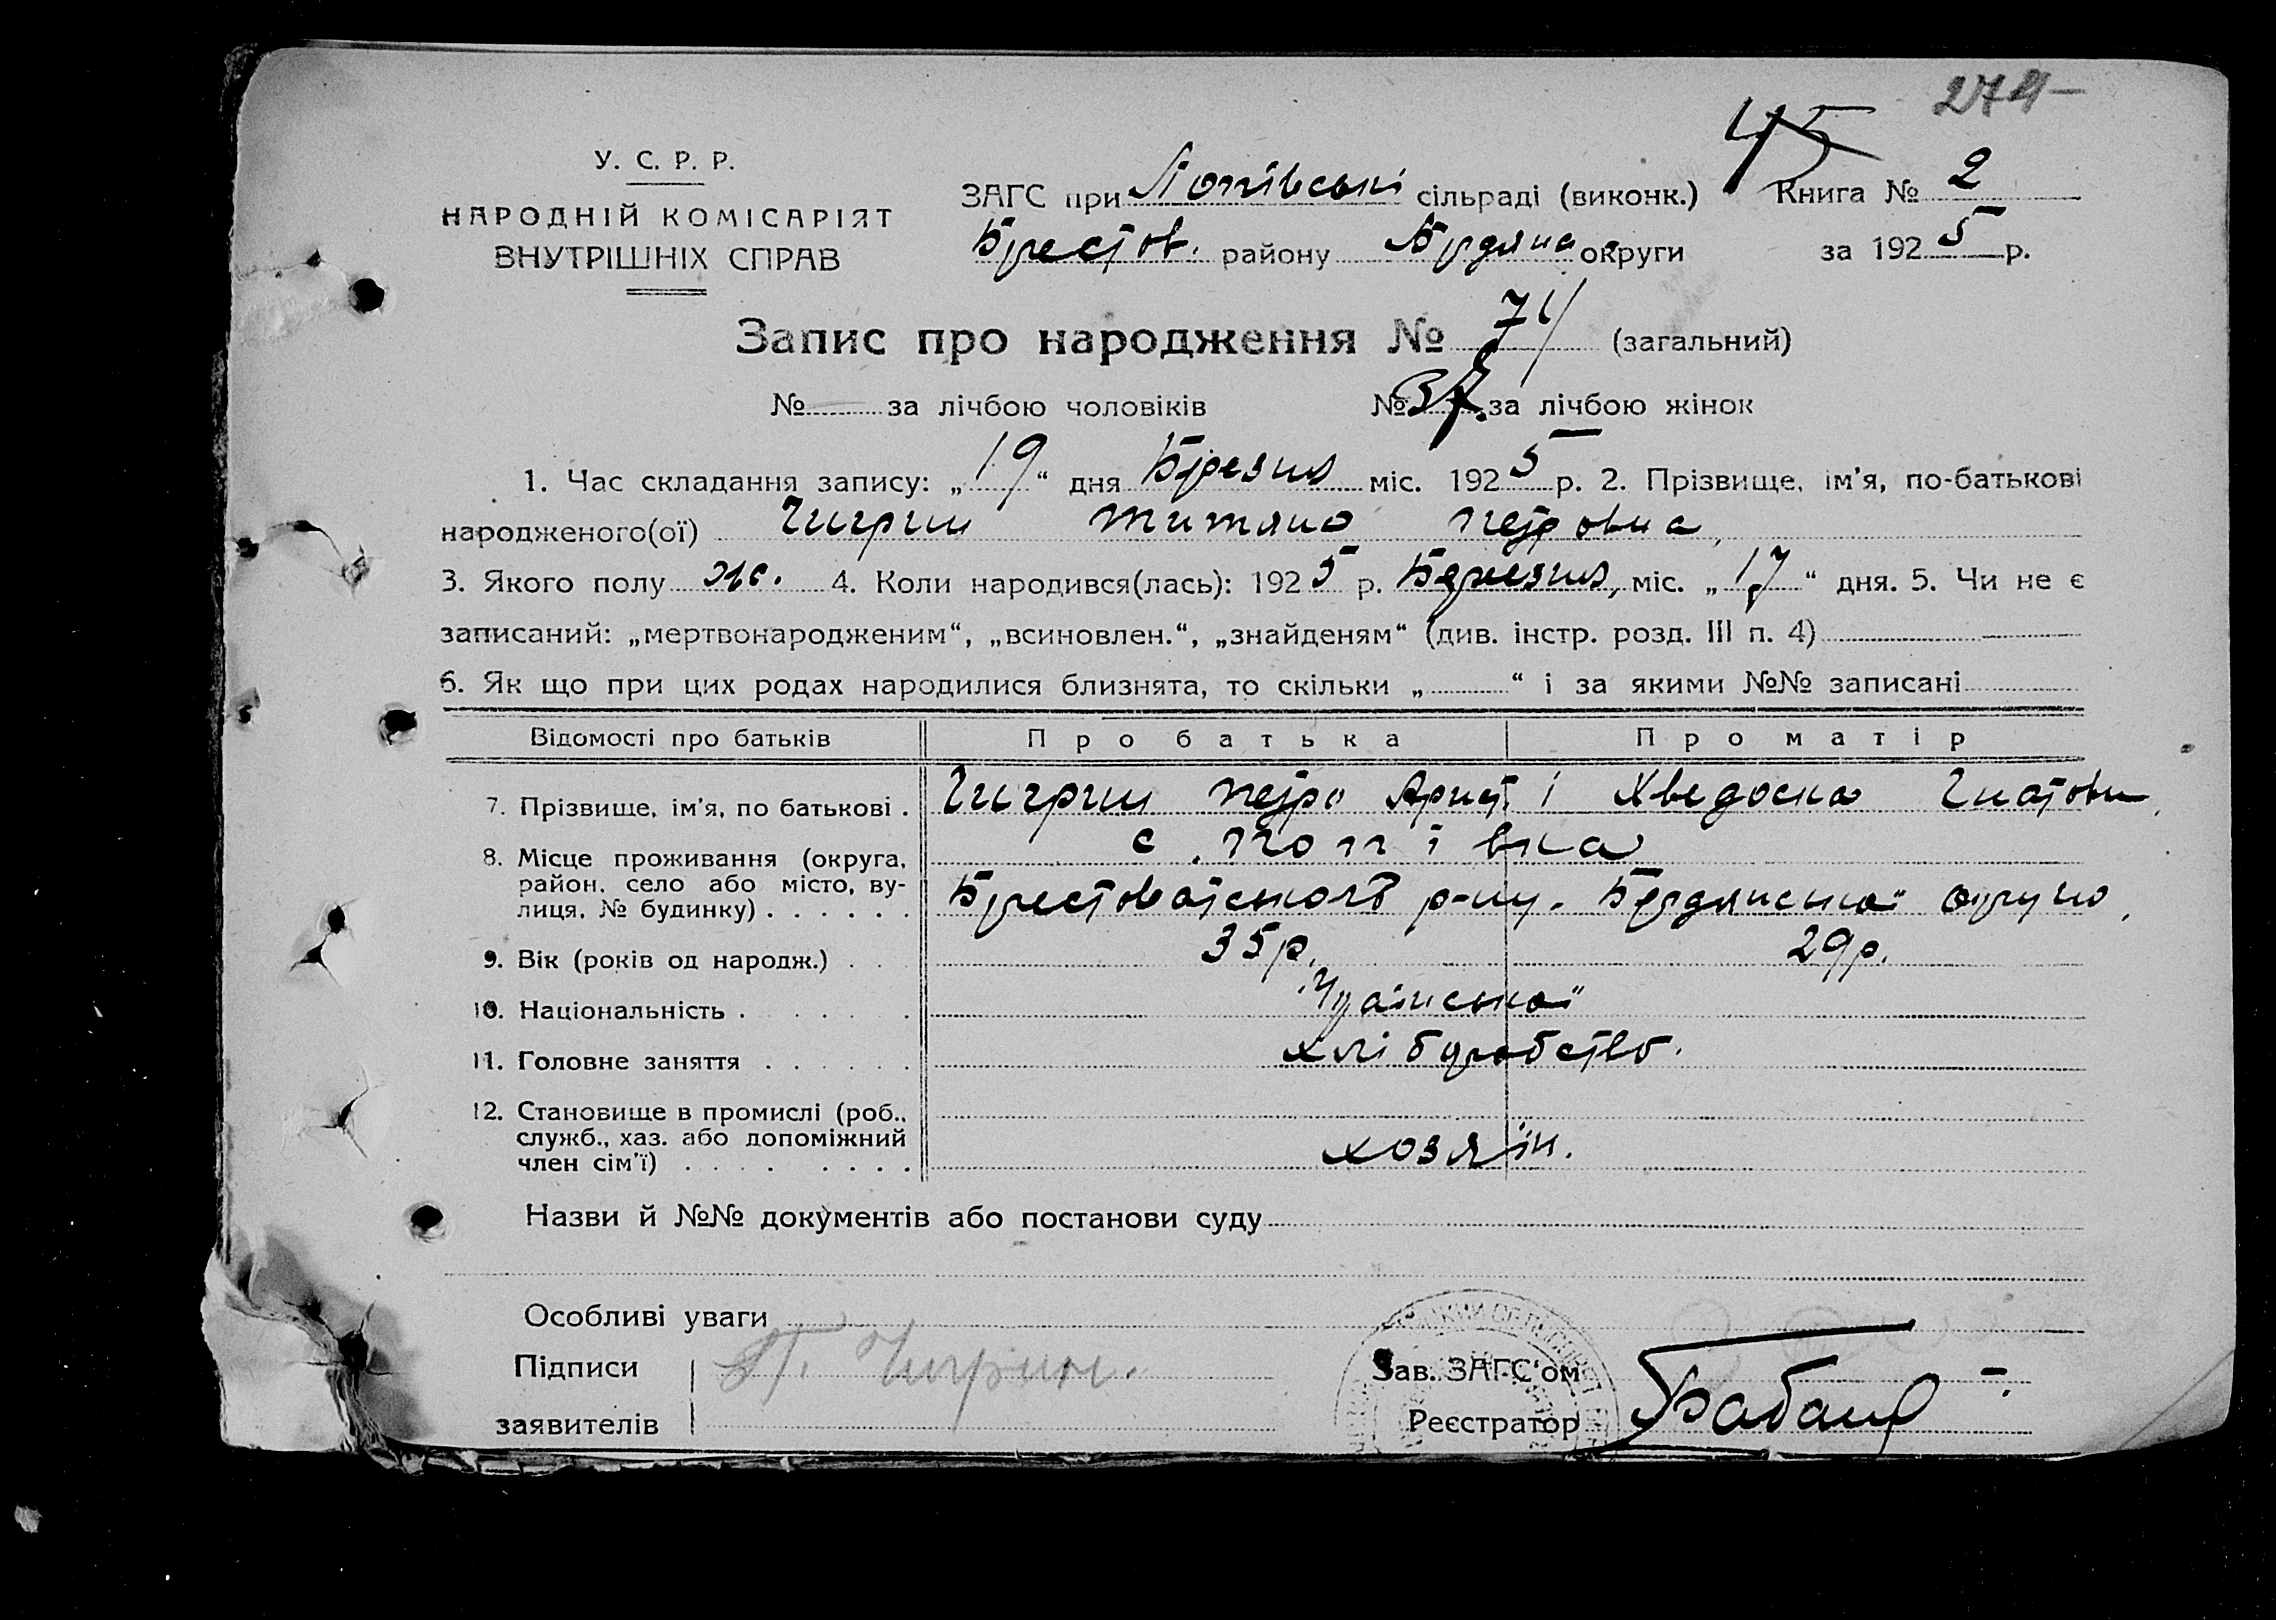 274
45
У. С. Р. Р.
НАРОДНІЙ КОМІСАРІЯТ
ВНУТРІШНІХ СПРАВ
ЗАГС при Попівські сільраді (виконк.) Книга № 2
Брестов. району Бердянс округи за 1925 р.
Запис про народження № 71 (загальний)
№ за лічбою чоловіків № 37. за лічбою жінок
1. Час складання запису: „19“ дня Березня міс. 1925 р. 2. Прізвище, ім'я, по-батькові
народженого(ої) Чигрин Титяна Петровна,
3. Якого полу жс. 4. Коли народився(лась): 1925 р. Березня, міс. „17“ дня. 5. Чи не є
записаний: „мертвонародженим“, „всиновлен.“, „знайденям“ (див. інстр. розд. III п. 4)
6. Як що при цих родах народилися близнята, то скільки „ “ і за якими №№ записані
Відомості про батьків Про батька Про матір
7. Прізвище, ім'я, по батькові . Чигрин Петро і Хведоска Гнатовн
8. Місце проживання (округа, с. Попівка
район, село або місто, ву-
лиця, № будинку) . . . . . . Брестоватського р-ну. Бердянської округи,
9. Вік (років од народж.) . . . 35р. 29р.
10. Національність . . . . . .
11. Головне заняття . . . . . . хліборобство.
12. Становище в промислі (роб.,
служб., хаз. або допоміжний
член сім'ї) . . . . . . . . хозяїн.
Назви й №№ документів або постанови суду
Особливі уваги
Підписи П. Чигрин. Зав. ЗАГС'ом
заявителів Реєстратор